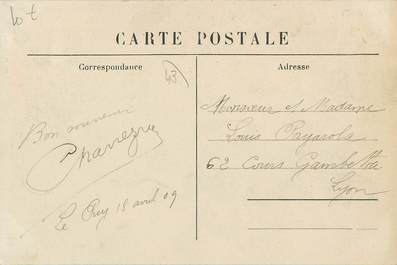 lot
CARTE POSTALE
Correspondance
43
Adresse
Bon souvenir
Monsieur et Madame
Louis
62 Cours Gambetta
Lyon
Le Puy 18 avril 09